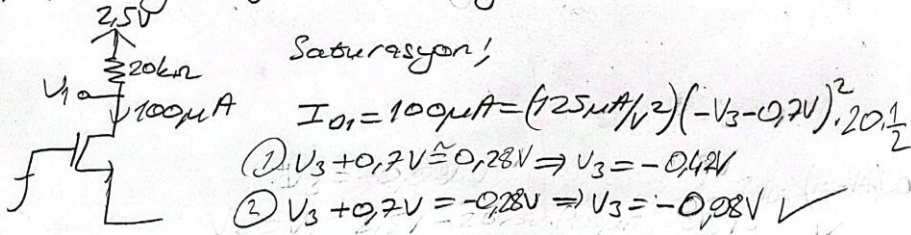 2,5V
20kΩ
V1
100μA
Saturasyon!
I_D1 = 100μA = (125μA/V²)(-V3-0,7V)².20.1/2
① V3+0,7V ≅ 0,28V ⇒ V3 = -0,42V
② V3+0,7V = -0,28V ⇒ V3 = -0,98V ✓